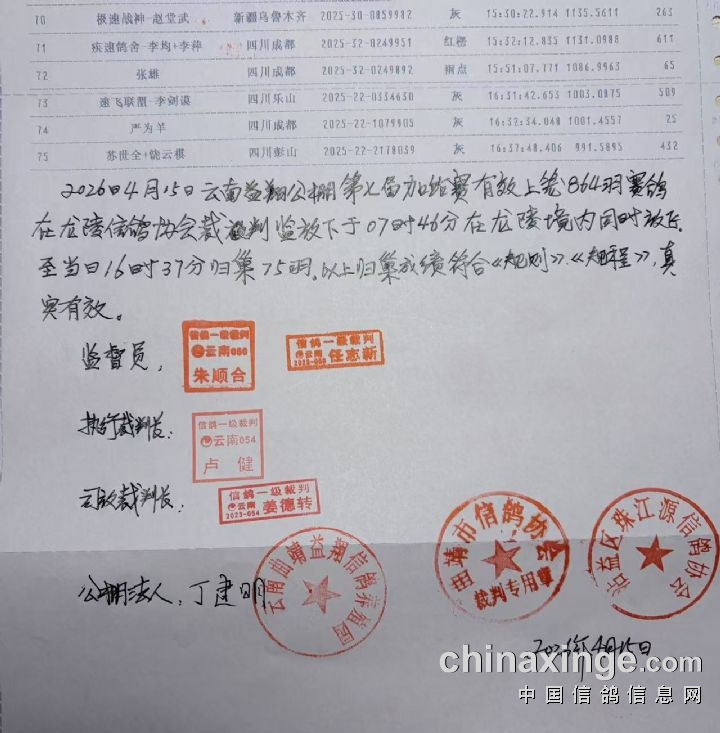 70 极速战神-赵堂武 新疆乌鲁木齐 2025-30-0859982 灰 15:30:22.914 1135.5611 263
71 疾速鸽舍-李均+李萍 四川成都 2025-32-0249951 红楞 15:32:12.835 1131.0988 611
72 张雄 四川成都 2025-32-0249892 雨点 15:51:07.771 1086.9963 65
73 速飞联盟-李剑谟 四川乐山 2025-22-0334630 灰 16:31:42.653 1003.0875 509
74 严为羊 四川成都 2025-22-1079905 灰 16:32:34.048 1001.4557 25
75 苏世全+饶云祺 四川彭山 2025-22-2178039 灰 16:37:48.406 991.5895 432
2026日4月15日云南益翔公棚第七届加站赛有效上笼864羽赛鸽
在龙陵信鸽协会裁判监放下于07时46分在龙陵境内同时放飞.
至当日16时37分归巢75羽,以上归巢成绩符合《规则》.《规程》,真
实有效。
监督员,
信鸽一级裁判
云南060
朱顺合
信鸽一级裁判
云南
任志新
执行裁判长:
信鸽一级裁判
云南054
卢健
司放裁判长,
信鸽一级裁判
云南
2023-054
姜德转
公棚法人,丁建明
云南曲靖益翔信鸽养殖园
曲靖市信鸽协会
裁判专用章
沾益区珠江源信鸽协会
2026年4月15日
chinaxinge.com
中国信鸽信息网